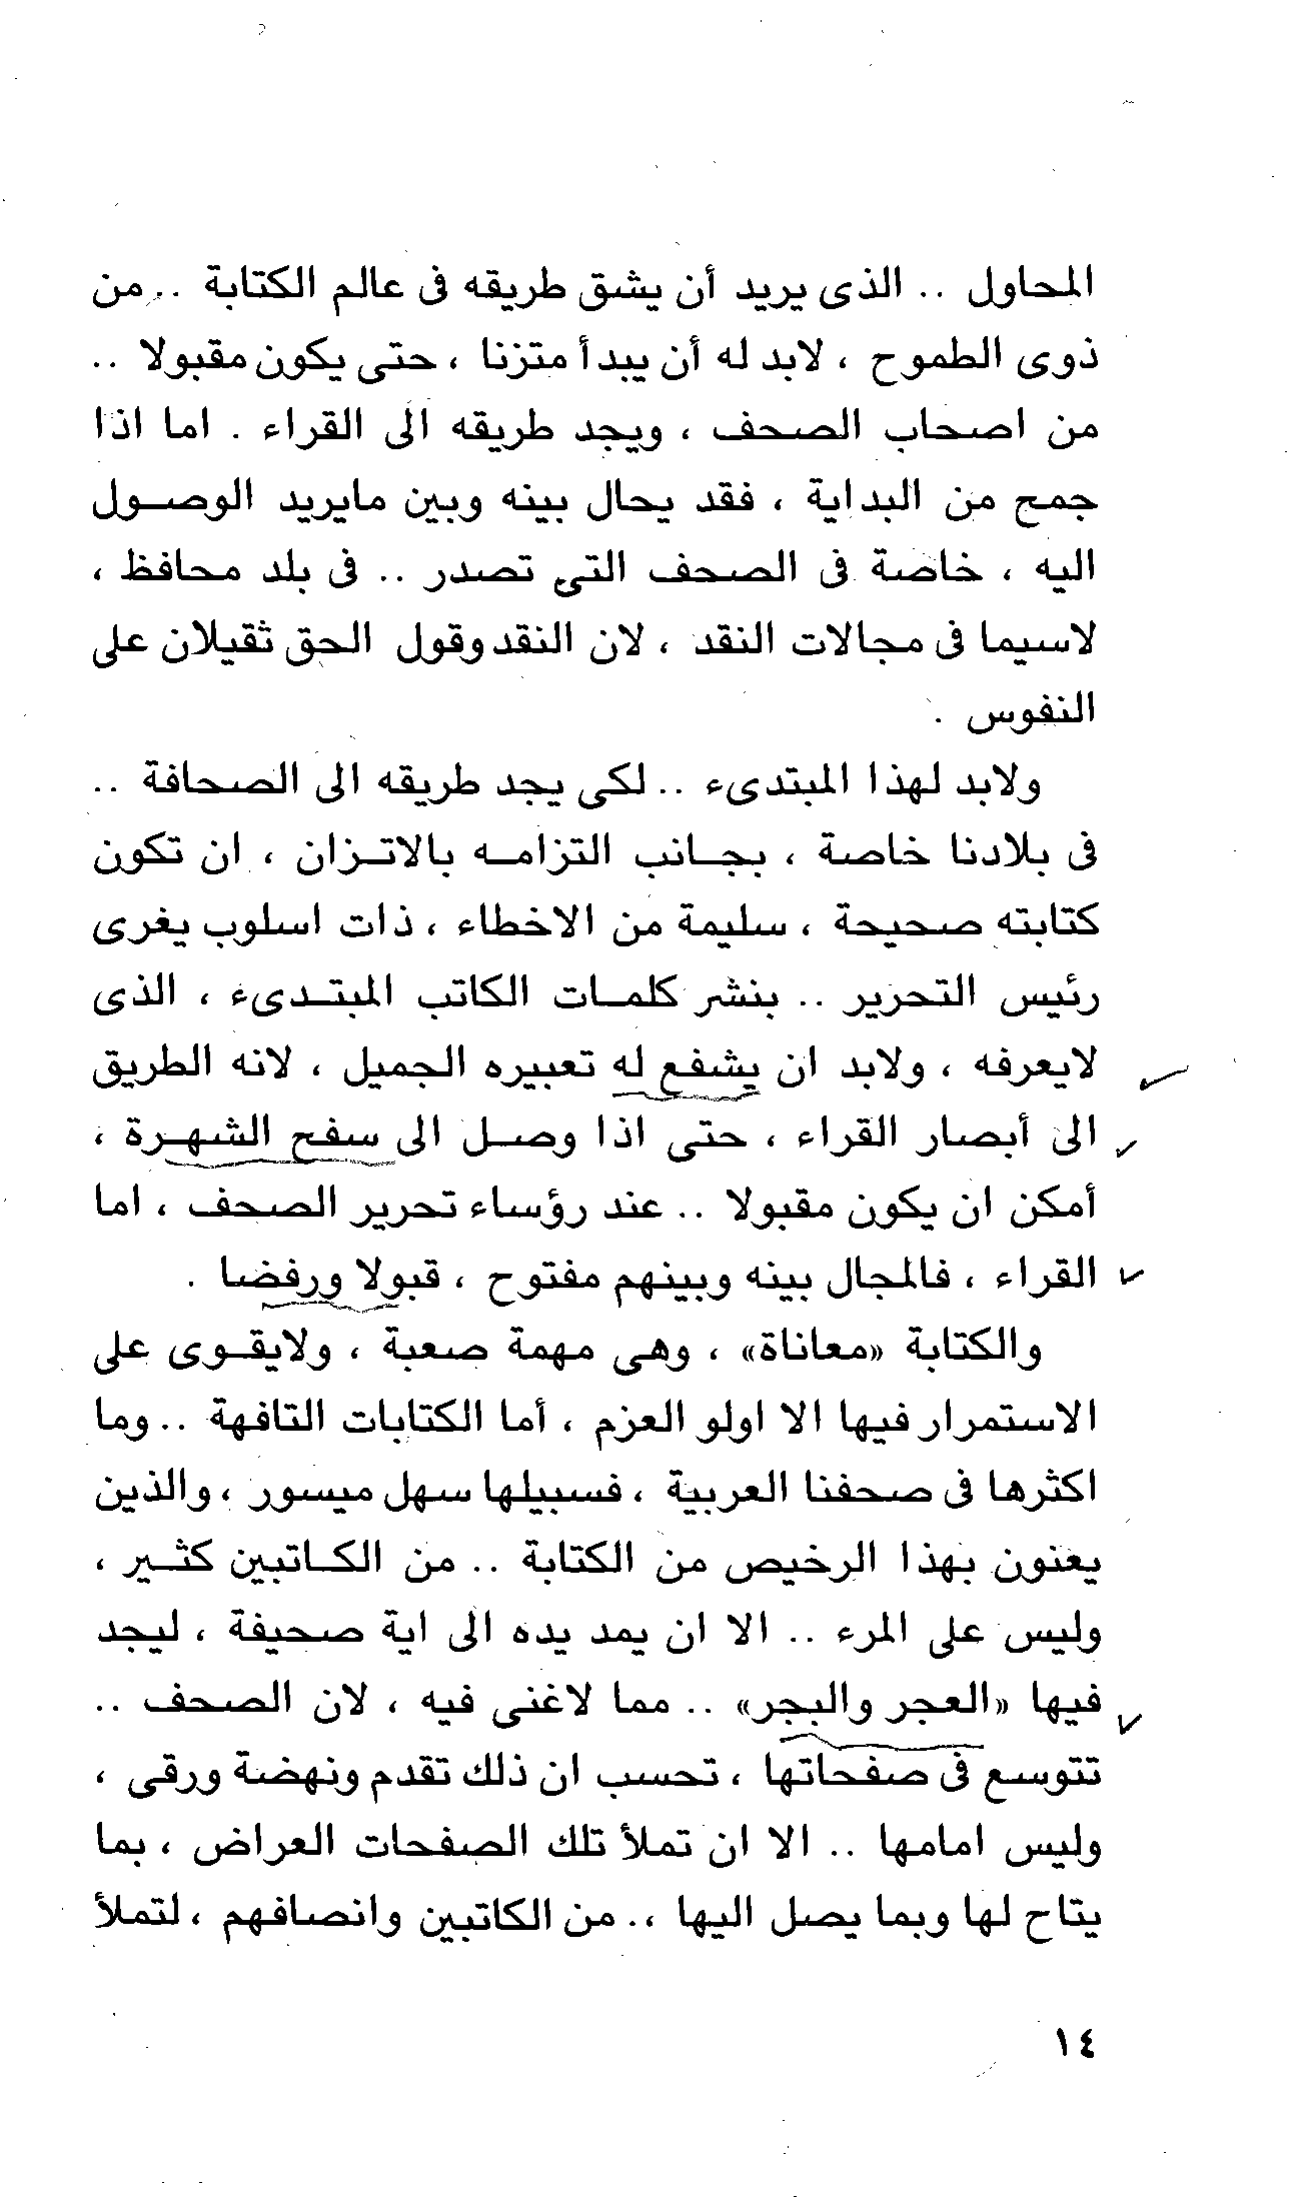 المحاول .. الذى يريد أن يشق طريقه فى عالم الكتابة .. من
ذوى الطموح ، لابد له أن يبدأ متزنا ، حتى يكون مقبولا ..
من اصحاب الصحف ، ويجد طريقه الى القراء . اما اذا
جمح من البداية ، فقد يحال بينه وبين مايريد الوصول
اليه ، خاصة فى الصحف التى تصدر .. فى بلد محافظ ،
لاسيما فى مجالات النقد ، لان النقد وقول الحق ثقيلان على
النفوس .
ولابد لهذا المبتدىء .. لكى يجد طريقه الى الصحافة ..
فى بلادنا خاصة ، بجانب التزامه بالاتزان ، ان تكون
كتابته صحيحة ، سليمة من الاخطاء ، ذات اسلوب يغرى
رئيس التحرير .. بنشر كلمات الكاتب المبتدىء ، الذى
لايعرفه ، ولابد ان يشفع له تعبيره الجميل ، لانه الطريق
الى أبصار القراء ، حتى اذا وصل الى سفح الشهرة ،
أمكن ان يكون مقبولا .. عند رؤساء تحرير الصحف ، اما
القراء ، فالمجال بينه وبينهم مفتوح ، قبولا ورفضا .
والكتابة «معاناة» ، وهى مهمة صعبة ، ولايقوى على
الاستمرار فيها الا اولو العزم ، أما الكتابات التافهة .. وما
اكثرها فى صحفنا العربية ، فسبيلها سهل ميسور ، والذين
يعنون بهذا الرخيص من الكتابة .. من الكاتبين كثير ،
وليس على المرء .. الا ان يمد يده الى اية صحيفة ، ليجد
فيها «العجر والبجر» .. مما لاغنى فيه ، لان الصحف ..
تتوسع فى صفحاتها ، تحسب ان ذلك تقدم ونهضة ورقى ،
وليس امامها .. الا ان تملأ تلك الصفحات العراض ، بما
يتاح لها وبما يصل اليها .. من الكاتبين وانصافهم ، لتملأ
١٤